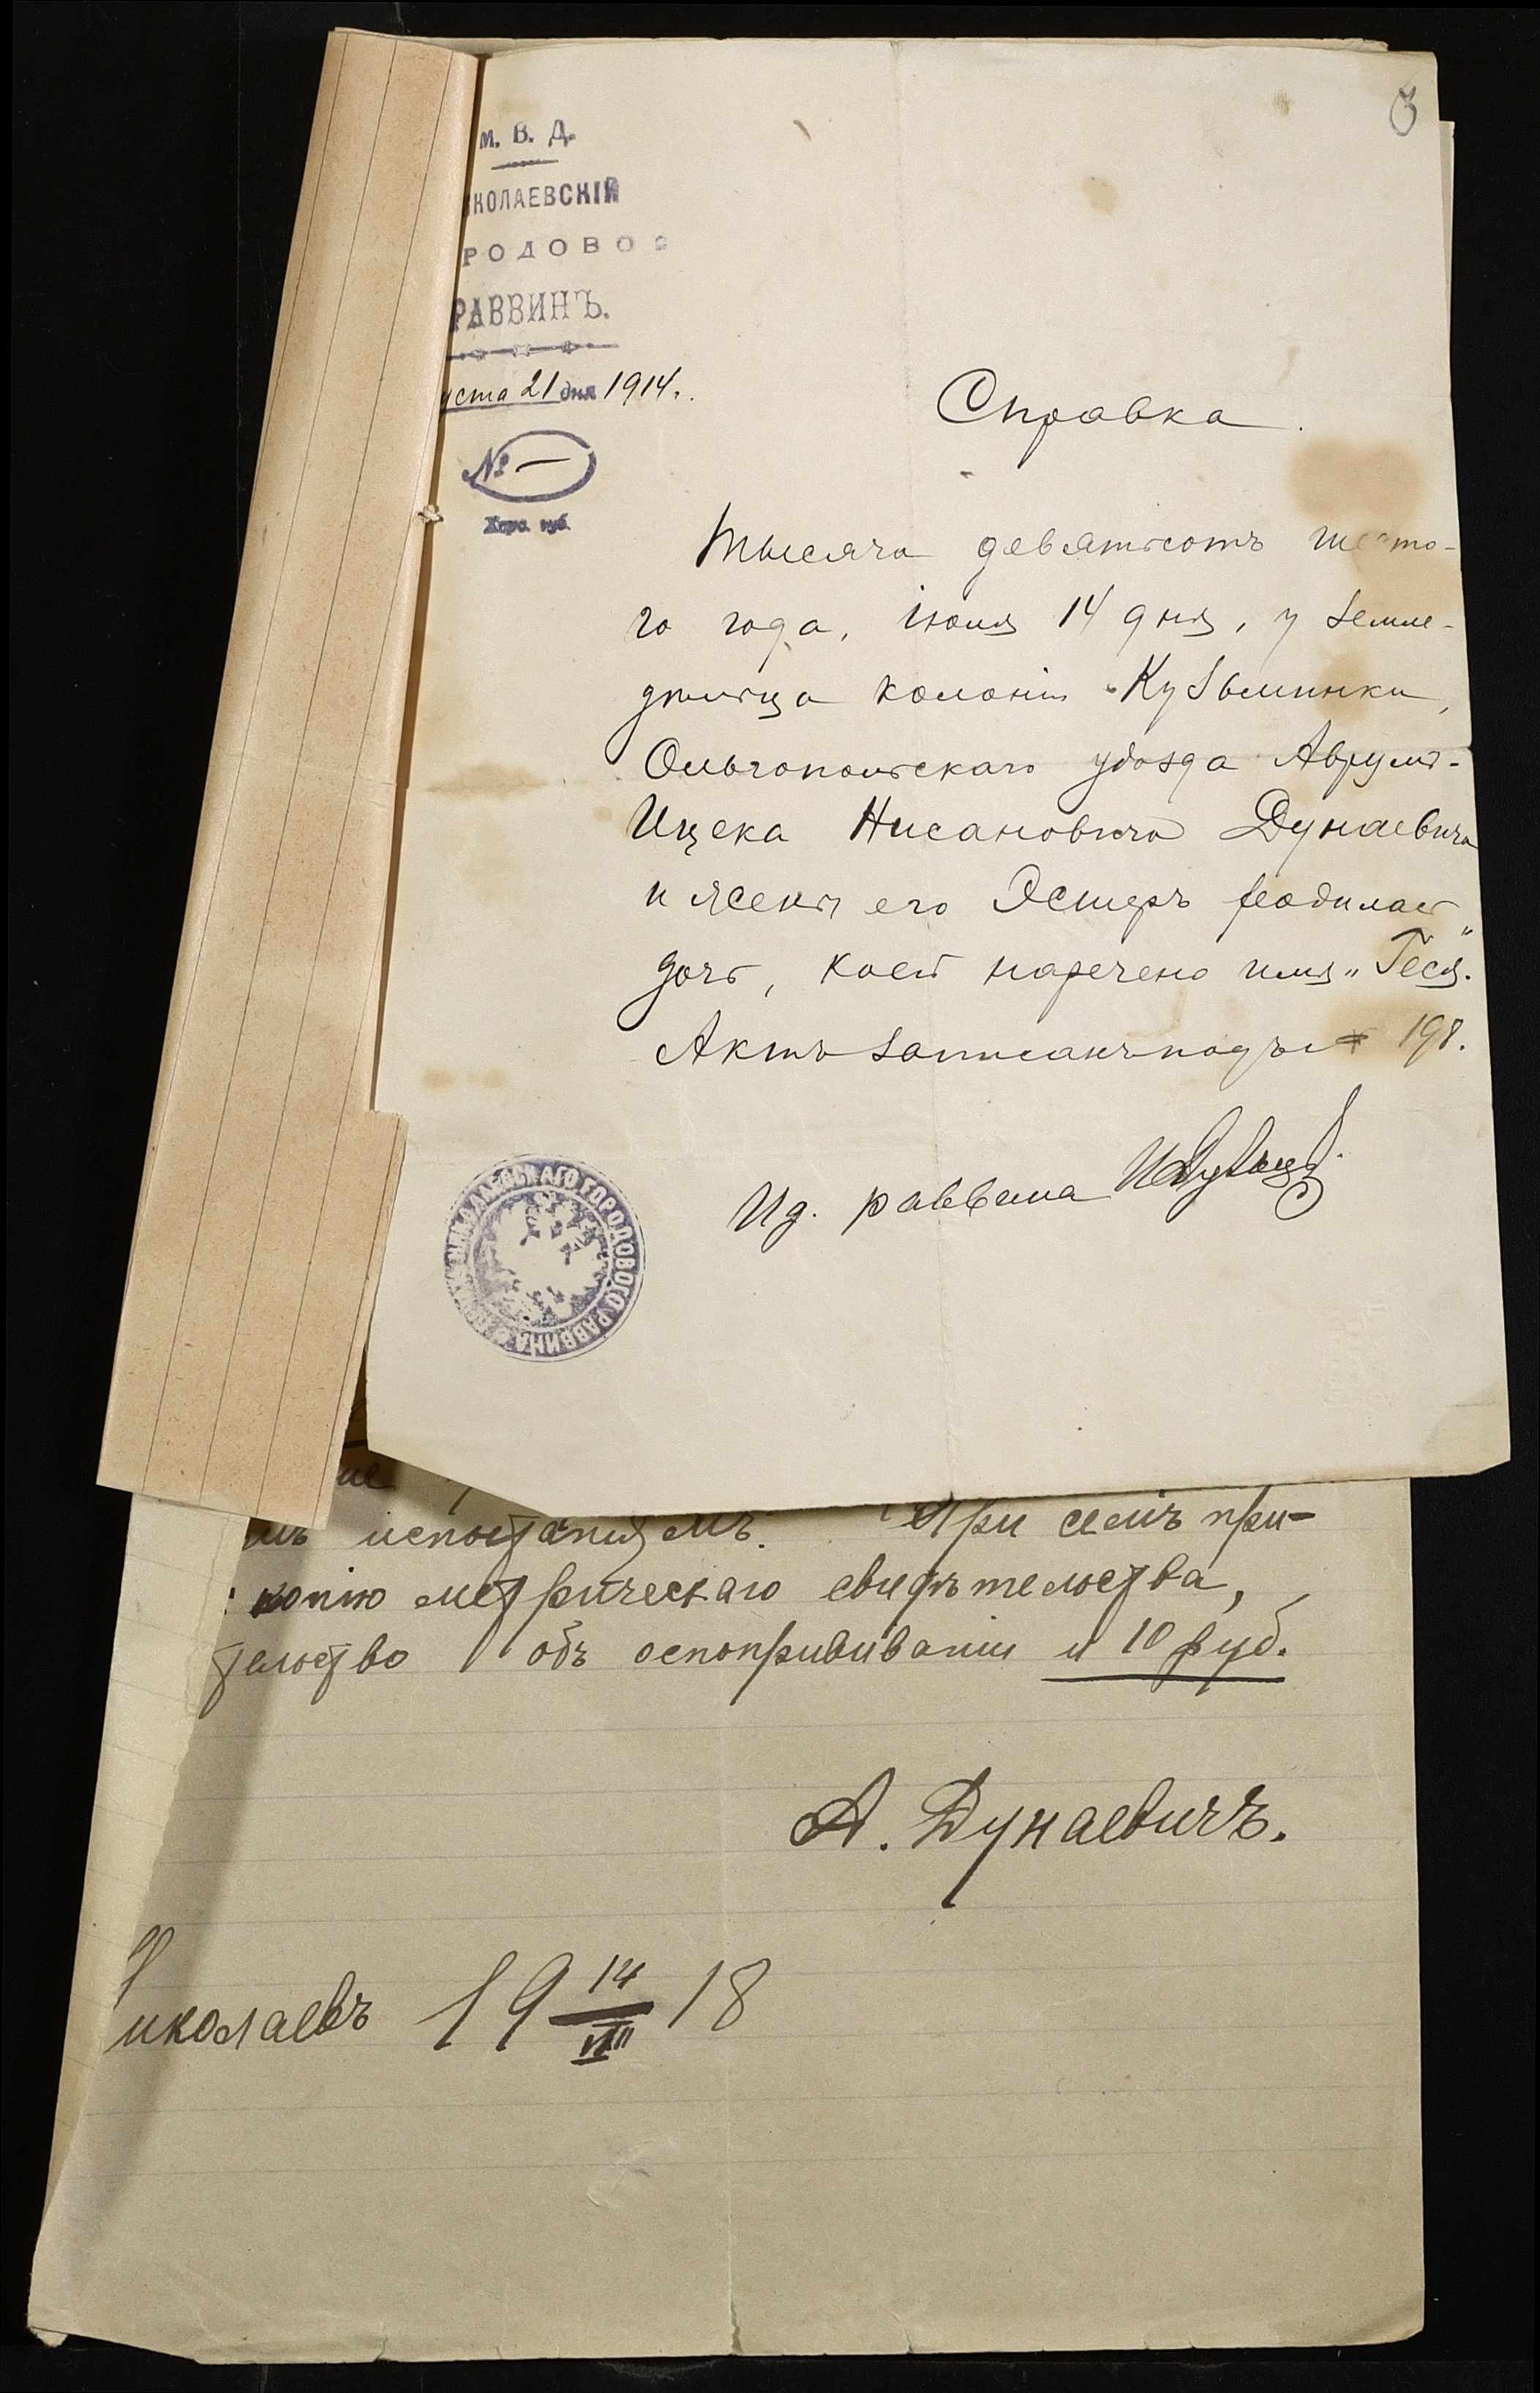 М. В. Д.
КОЛАЕВСКІЙ
РОДОВО
РАВВИНЪ.
уста 21 дня 1914.
№ —
Херс. губ.
Справка.
Тысяча девятьсотъ шесто-
го года, іюля 14 дня, у земле-
дѣльца колоніи Кузьминки,
Ольгопольскаго уѣзда Аврумъ-
Ицека Нисановича Дунаевича
и жены его Эстеръ родилась
дочь, коей наречено имя „Геся".
Актъ записанъ подъ № 198.
Ид. раввина
НИКОЛАЕВСКАГО ГОРОДОВОГО РАВВИНА
ие
мъ испытаніямъ. При семъ при-
копію метрическаго свидѣтельства,
тельство объ оспопрививаніи и 10 руб.
А. Дунаевичъ.
Николаевъ 19 14/VIII 18